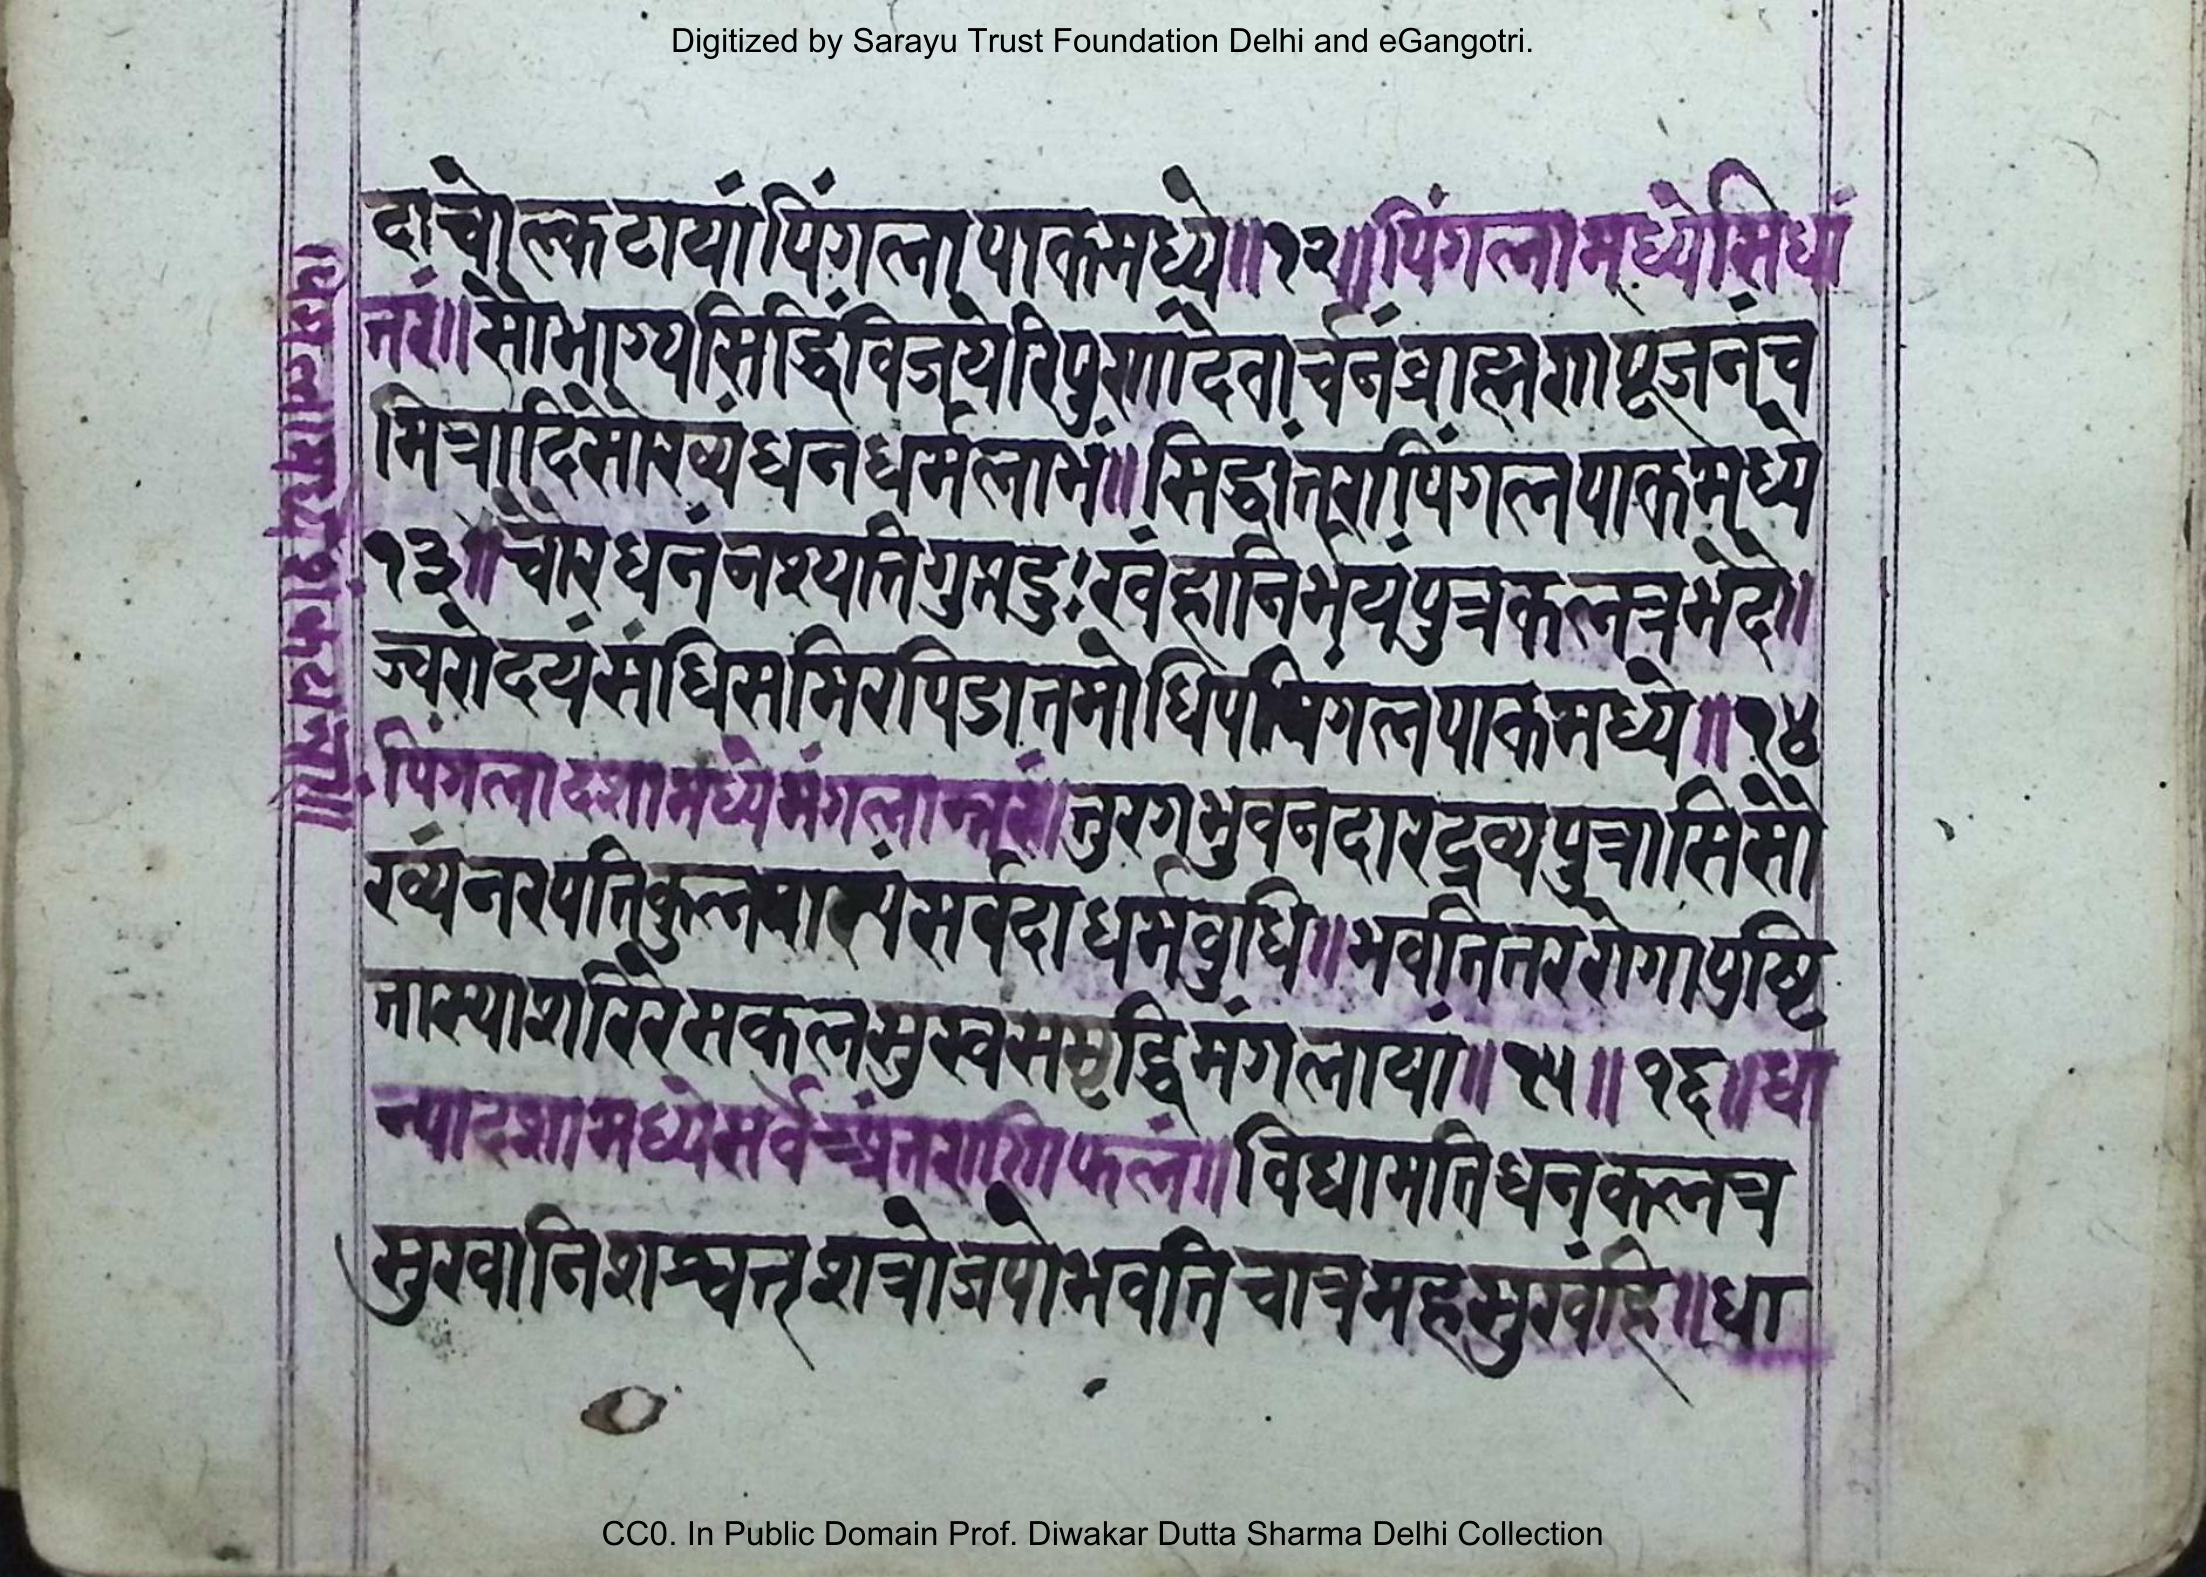 Digitized by Sarayu Trust Foundation Delhi and eGangotri.
दाचोल्कटायांपिंगलापाकमध्ये॥१२॥पिंगलामध्येसिधां
तरं॥सौभाग्यसिद्धिंविजयेरिपुणांदेवार्चनंब्राह्मणपूजनंच
मित्रादिसौख्यंधनधर्मलाभं॥सिद्धांतरापिंगलपाकमध्ये
१३॥चौरधनंनश्यतिगुप्तदुःखंहानिर्भयंपुत्रकलत्रभेदो॥
ज्वरोदयंसंधिसमिरपिडातमोधिपपिंगलपाकमध्ये॥१४
पिंगलादशामध्येमंगलान्तरं॥तुरगभुवनदारद्रव्यपुत्रासिसौ
ख्यंनरपतिकुलसर्वदाधर्मबुधि॥भवतितररोगापुष्टि
तास्याशरिरेसकलसुखसमृद्धिमंगलायां॥१५॥१६॥धा
न्यादशामध्येसर्वफलं॥विद्यामतिधनकलत्र
सुखानिशश्वत्शत्रोजपोभवतिचात्रमहसुखंहि॥धा
CC0. In Public Domain Prof. Diwakar Dutta Sharma Delhi Collection